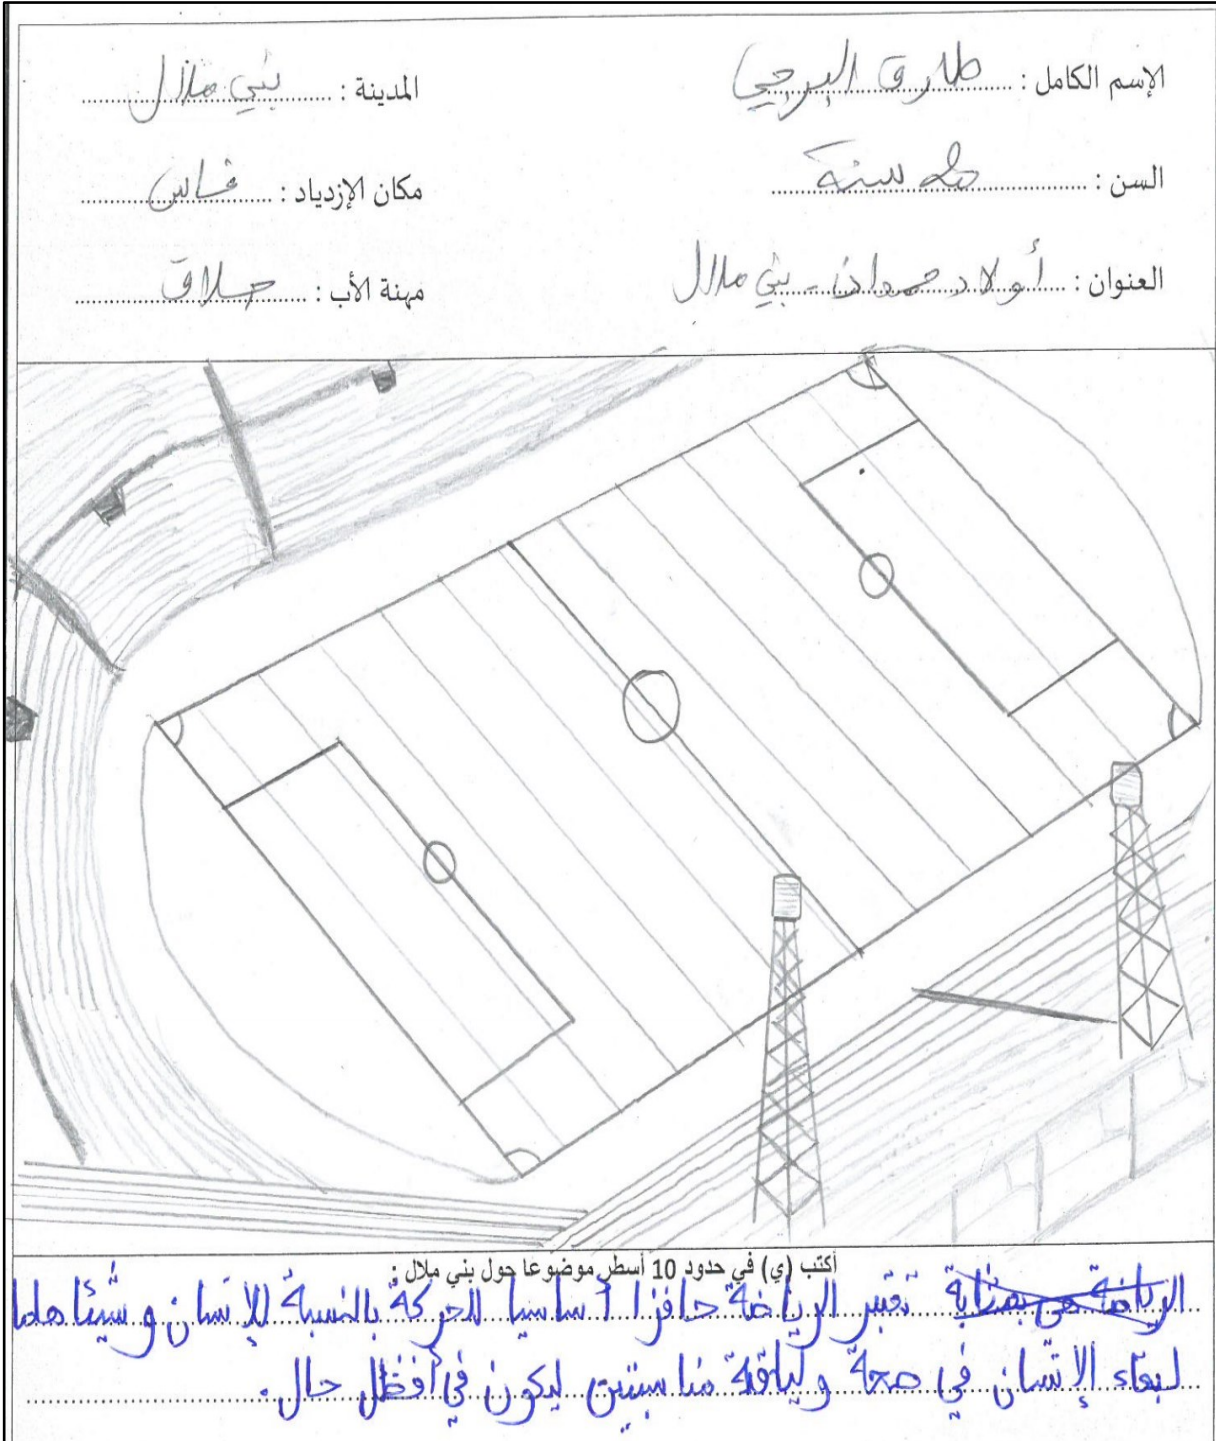 الإسم الكامل : طارق البرجي المدينة : بني ملال
السن : سنة مكان الإزدياد : فاس
العنوان : أولاد حمدان - بني ملال مهنة الأب : حلاق
أكتب (ي) في حدود 10 أسطر موضوعا حول بني ملال :
الرياضة هي بمثابة تعتبر الرياضة حافزا أساسيا للحركة بالنسبة للإنسان و شيئا هاما
لبقاء الإنسان في صحة و لياقة مناسبتين ليكون في أفظل حال .